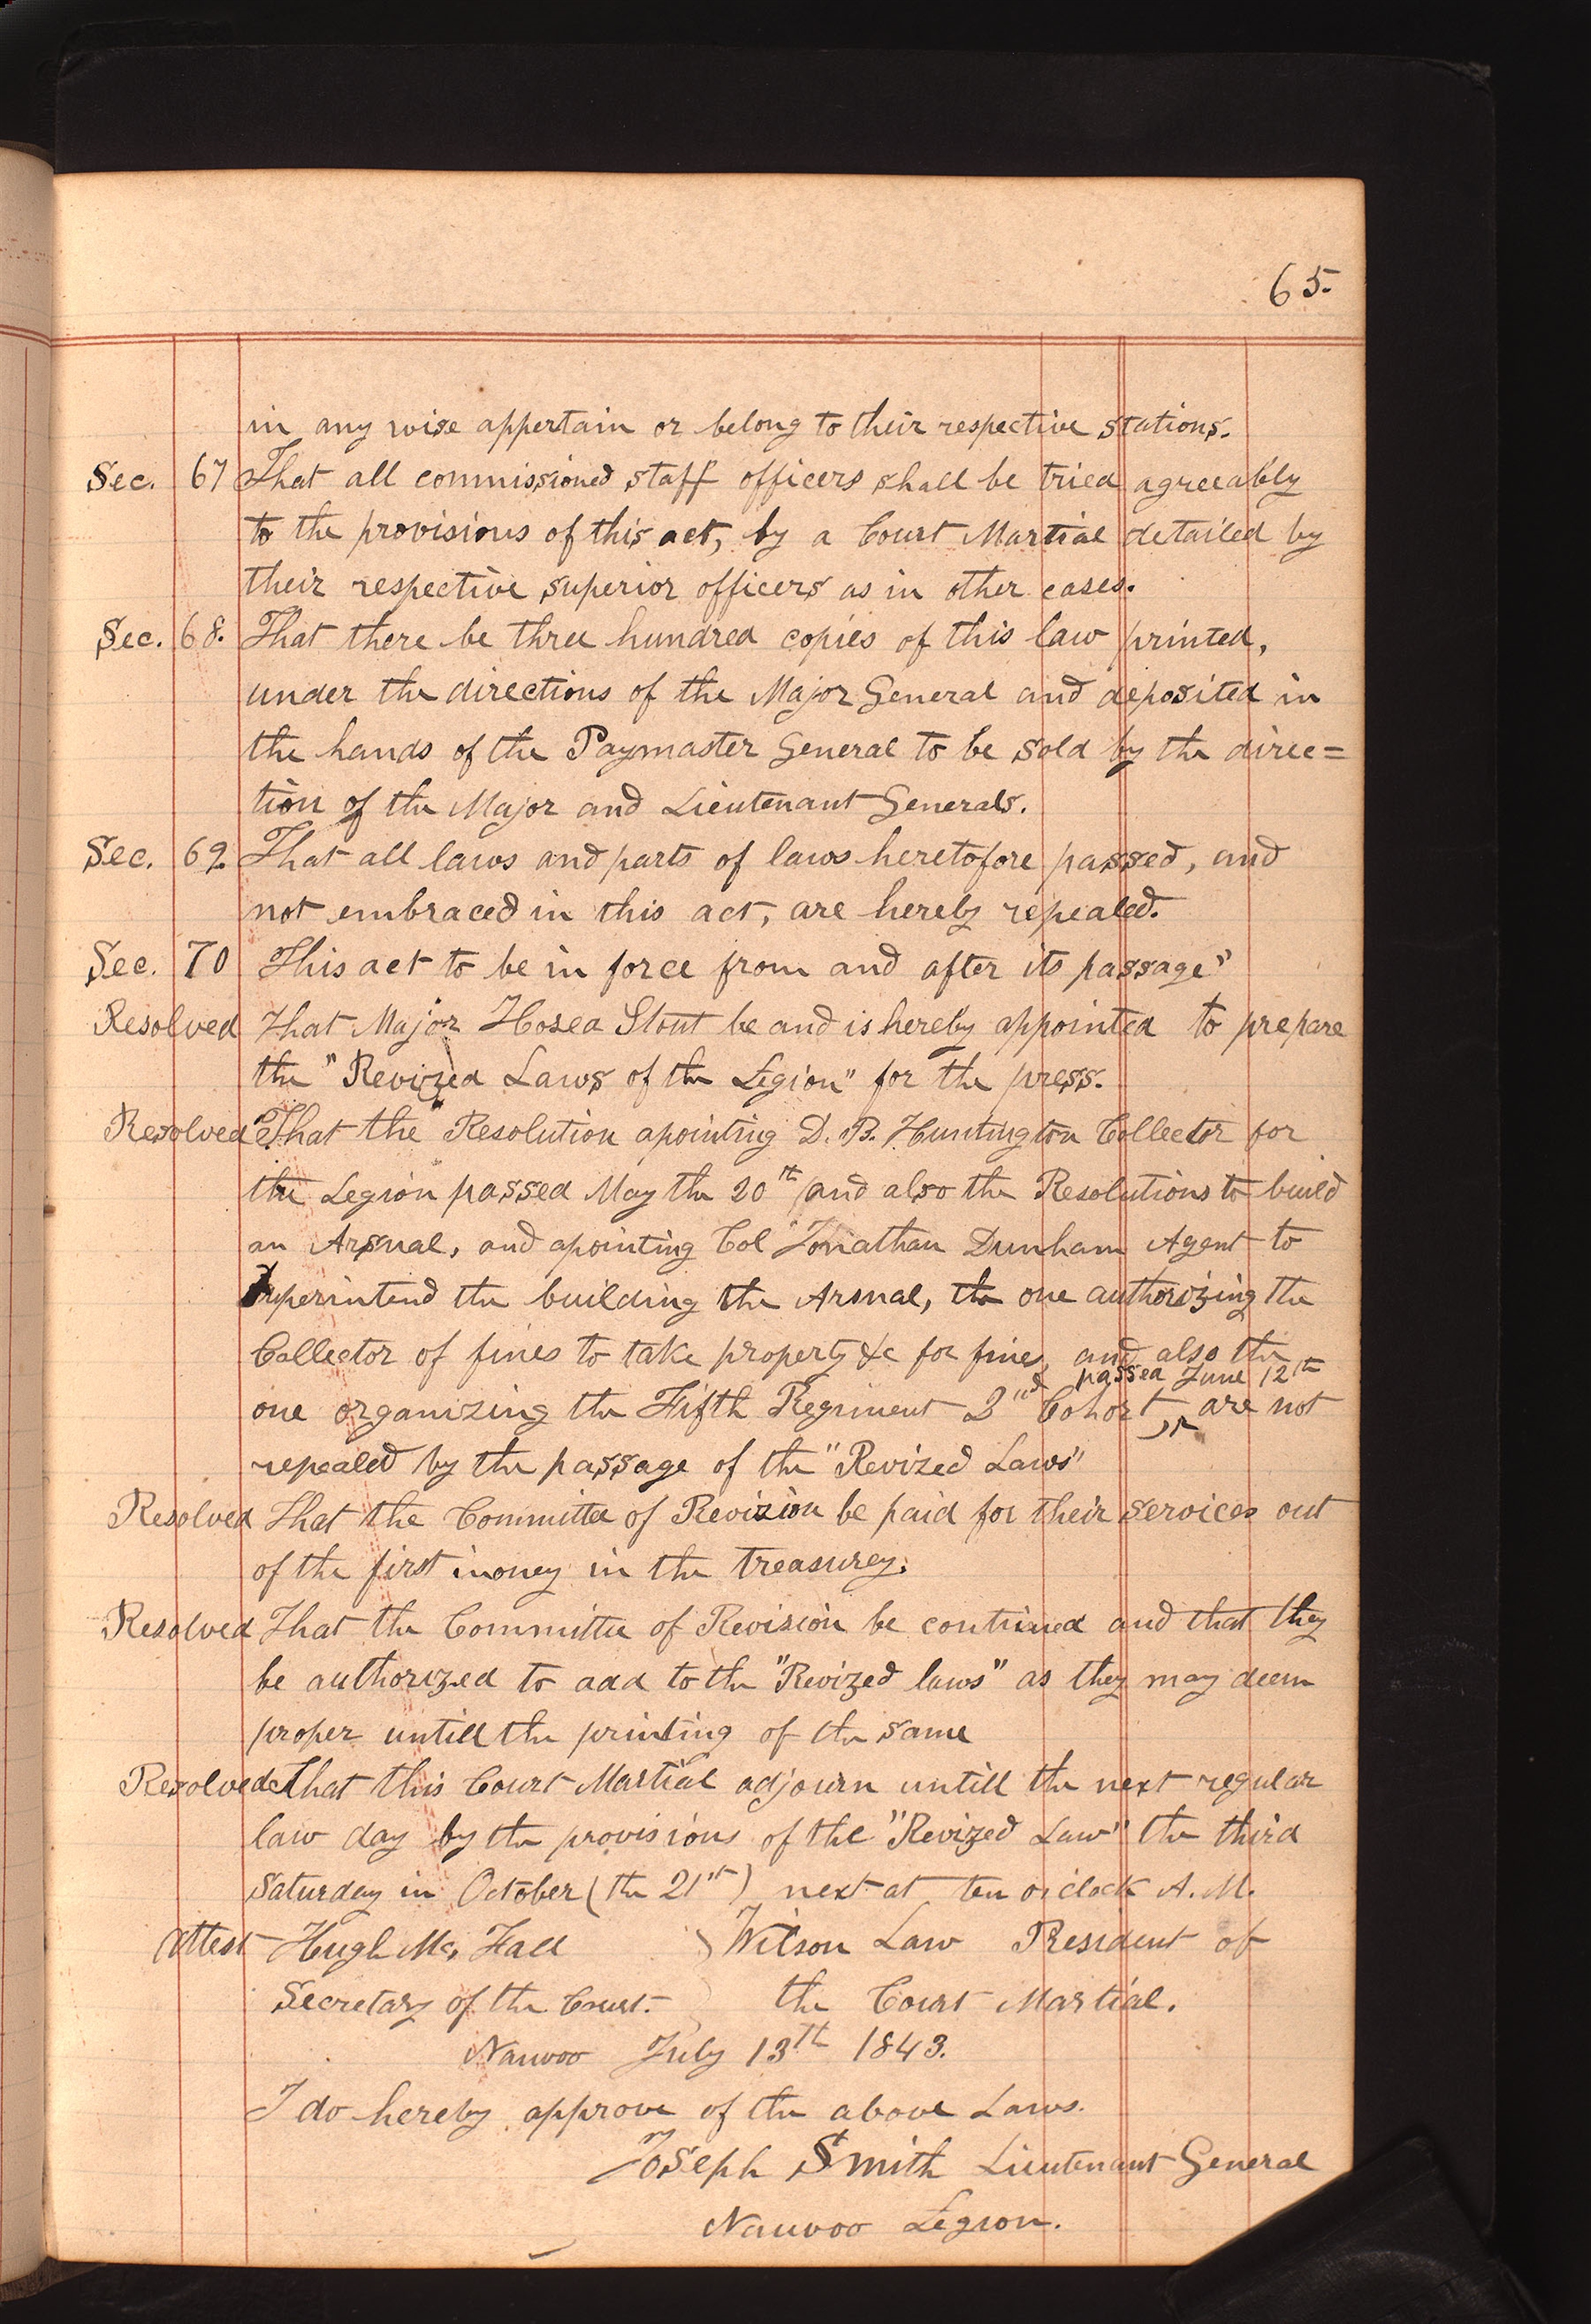 65.
in any wise appertain or belong to their respective stations.
Sec. 67 That all commissioned staff officers shall be tried agreeably
to the provisions of this act, by a Court Martial detailed by
their respective superior officers as in other cases.
Sec. 68. That there be three hundred copies of this law printed,
under the directions of the Major General and deposited in
the hands of the Paymaster General to be sold by the direc=
tion of the Major and Lieutenant Generals.
Sec. 69. That all laws and parts of laws heretofore passed, and
not embraced in this act, are hereby repealed.
Sec. 70 This act to be in force from and after its passage"
Resolved That Major Hosea Stout be and is hereby appointed to prepare
the "Revized Laws of the Legion" for the press.
Resolved That the Resolution apointing D. B. Huntington Collector for
the Legion passed May the 20th and also the Resolutions to build
an Arsnal, and apointing Col Jonathan Dunham Agent to
superintend the building the Arsnal, the one authorizing the
Collector of fines to take property &c for fines, and also the
passed June 12th
one organizing the Fifth Regiment 2nd Cohort, are not
repealed by the passage of the "Revized Laws"
Resolved That the Committee of Revizion be paid for their services out
of the first money in the treasurey.
Resolved That the Committee of Revizion be continued and that they
be authorized to add to the "Revized laws" as they may deem
proper untill the printing of the same
Resolved That this Court Martial adjourn untill the next regular
law day by the provisions of the "Revized Law" the third
Saturday in October (the 21st) next at ten o'clock A. M.
Attest Hugh Mc, Fall } Wilson Law President of
Secretary of the Court. } the Court Martial.
Nauvoo July 13th 1843.
I do hereby approve of the above Laws.
Joseph Smith Lieutenant General
Nauvoo Legion.